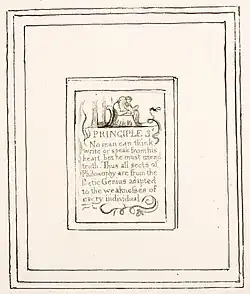 PRINCIPLE 3
No man can think
write or speak from his
heart, but he must intend
truth. Thus all sects of
Philosophy are from the
Poetic Genius adapted
to the weaknesses of
every individual